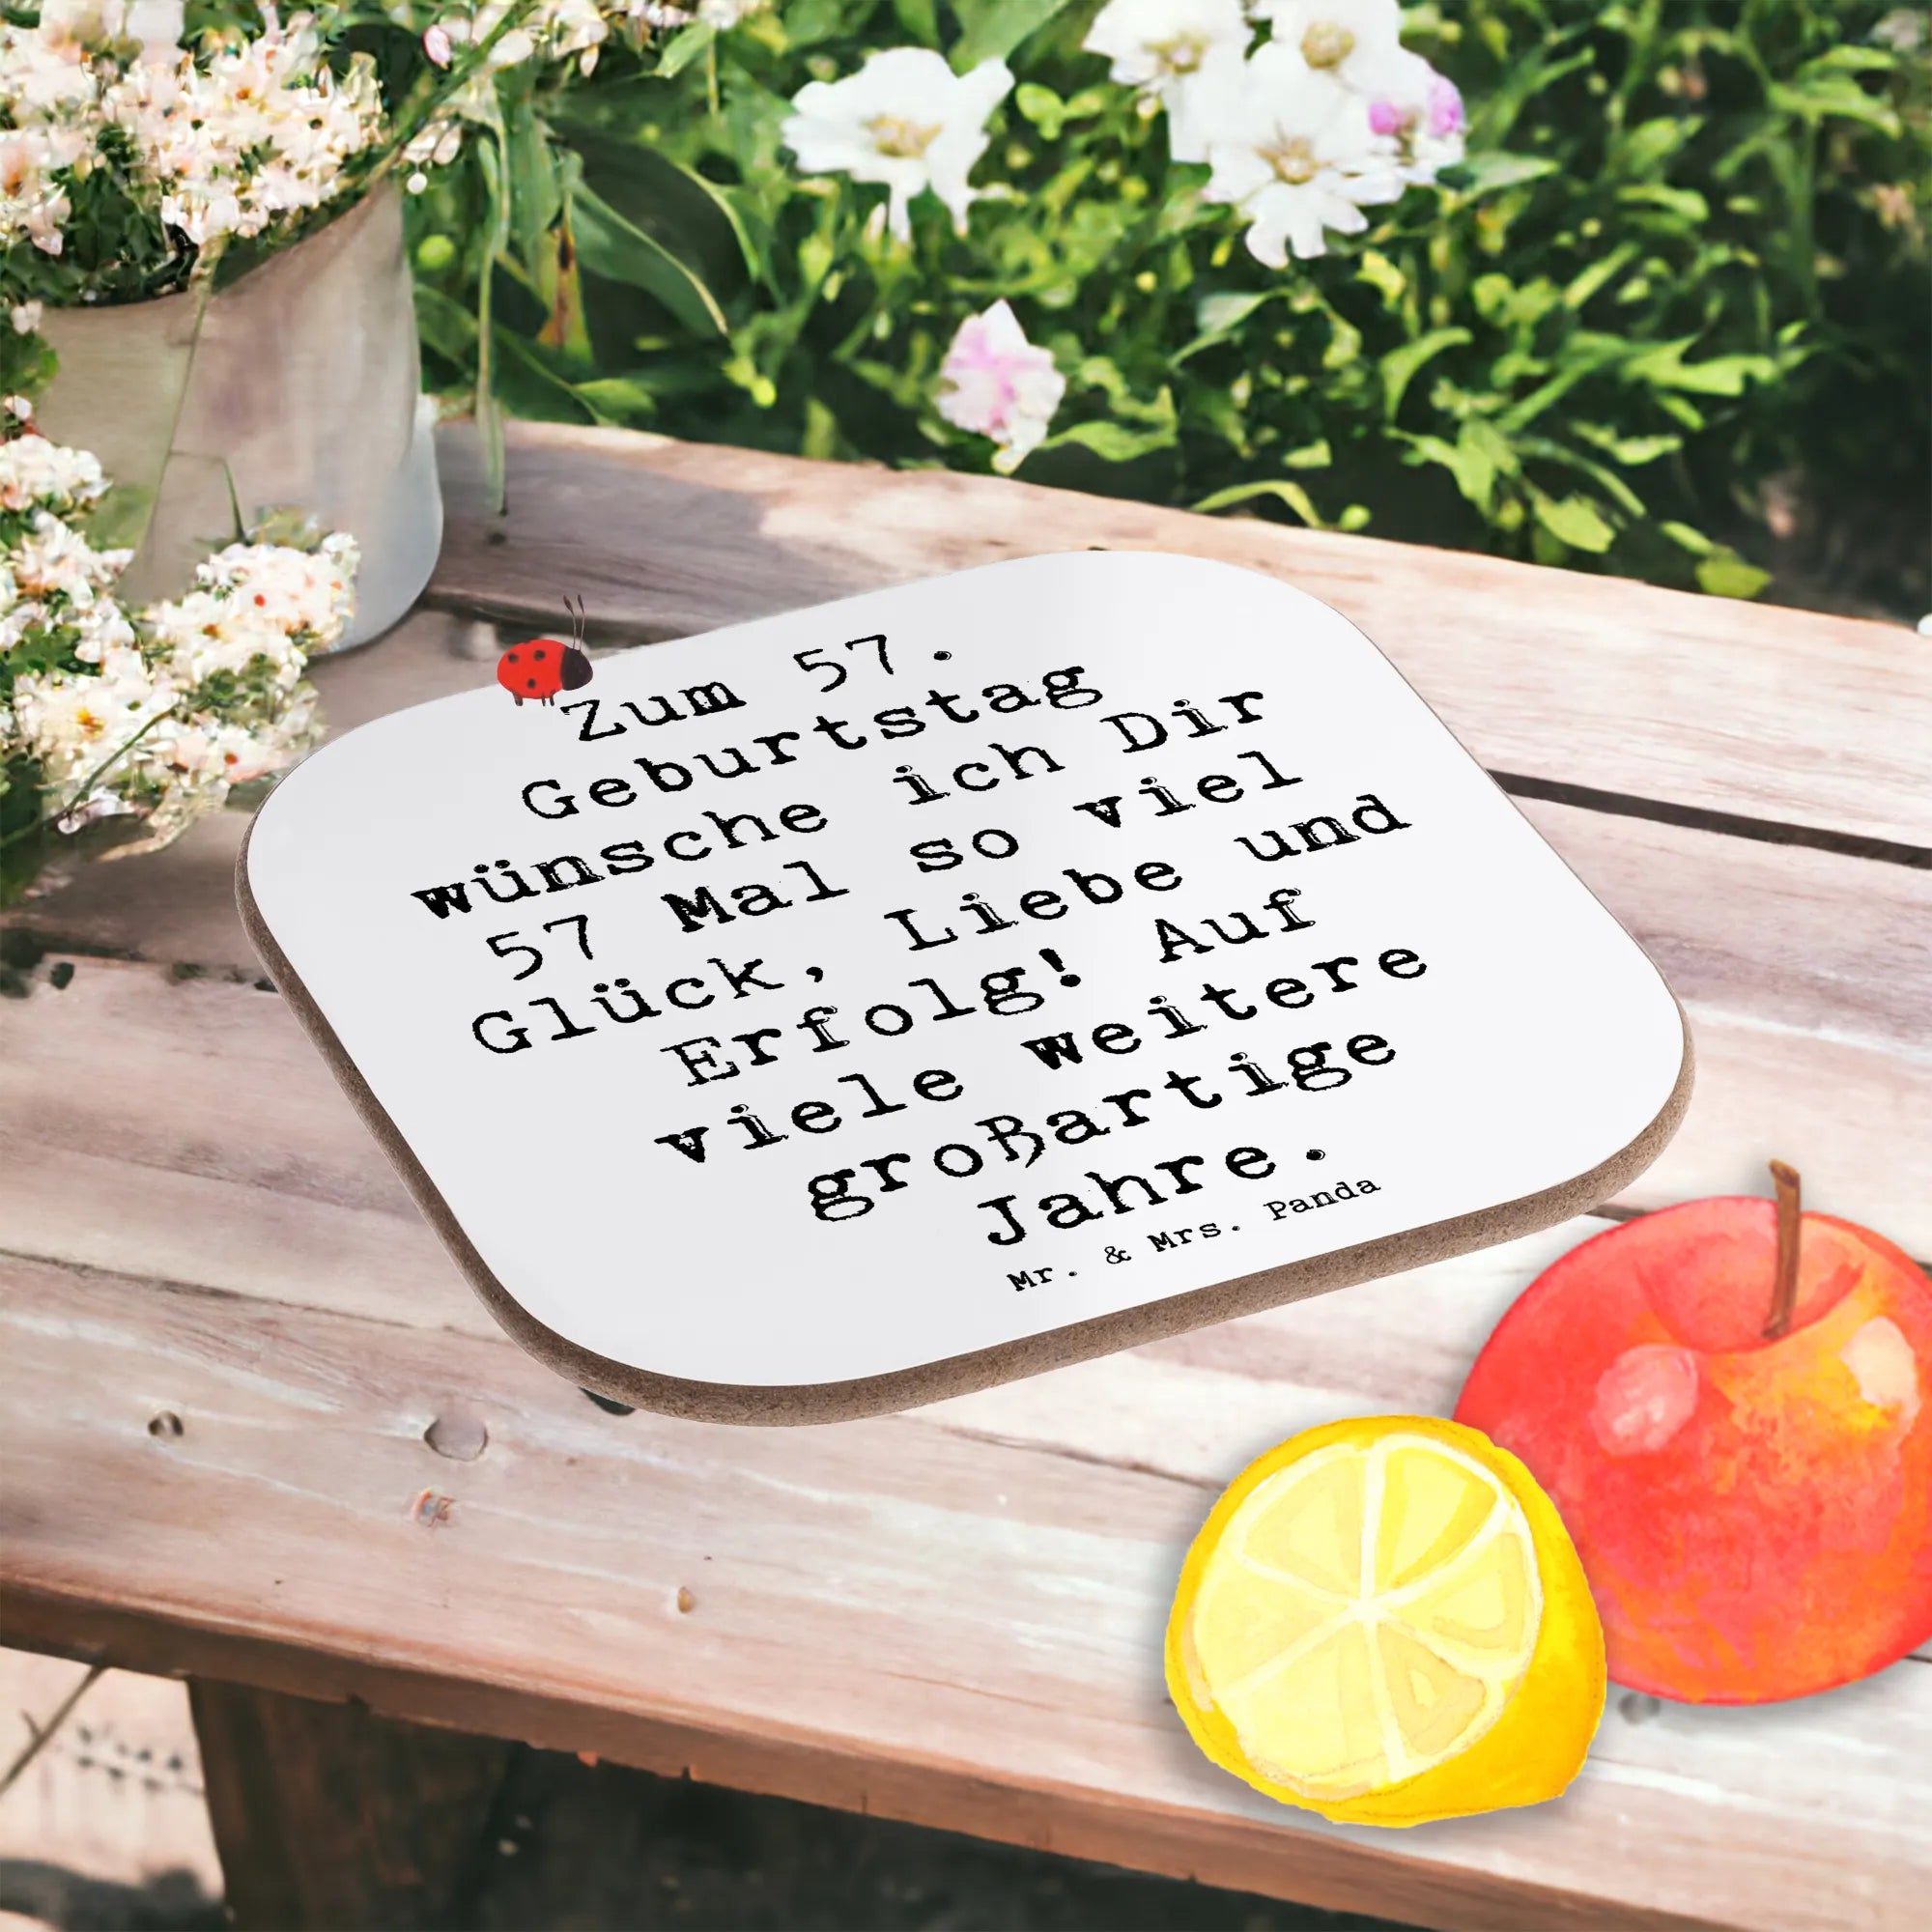 Zum 57.
Geburtstag
wünsche ich Dir
57 Mal so viel
Glück, Liebe und
Erfolg! Auf
viele weitere
großartige
Jahre.
Mr. & Mrs. Panda